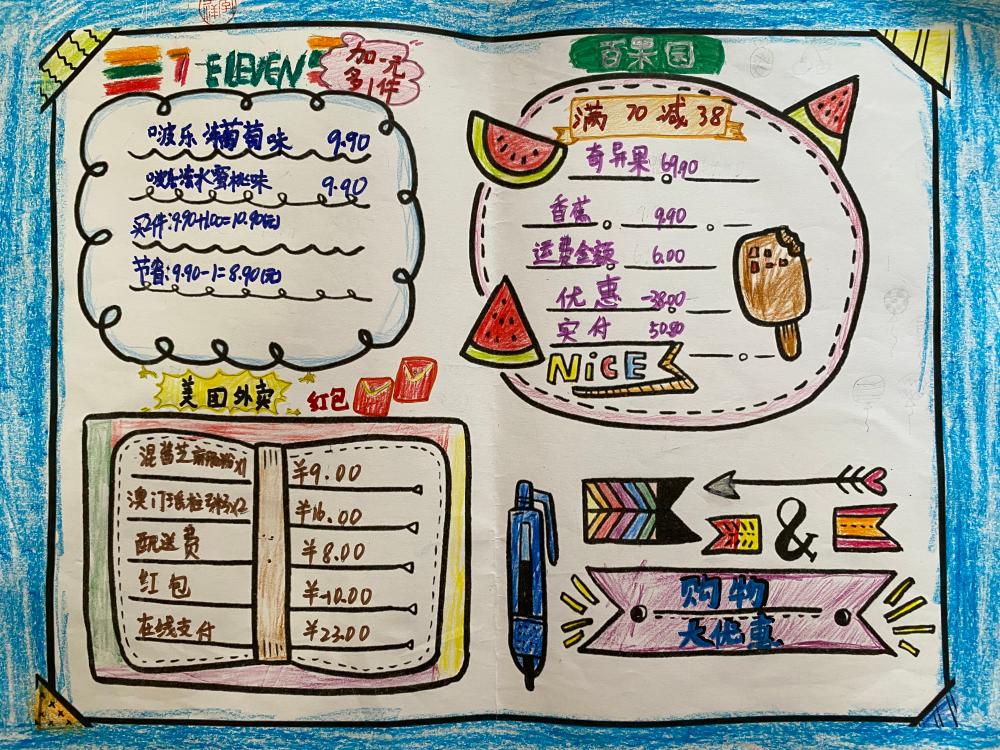 7-ELEVEN
加一元
多1件
啵乐冻葡萄味 9.90
冻水蜜桃味 9.90
买2件:9.90+1.00=10.90(元)
节省:9.90-1=8.90(元)
百果园
满 70 减 38
奇异果 69.90
香蕉 9.90
运费金额 6.00
优惠 -38.00
实付
NiCE
美团外卖 红包
混酱芝麻肠粉x1 ¥9.00
澳门 x2 ¥16.00
配送费 ¥8.00
红包 ¥-10.00
在线支付 ¥23.00
&
购物
大优惠